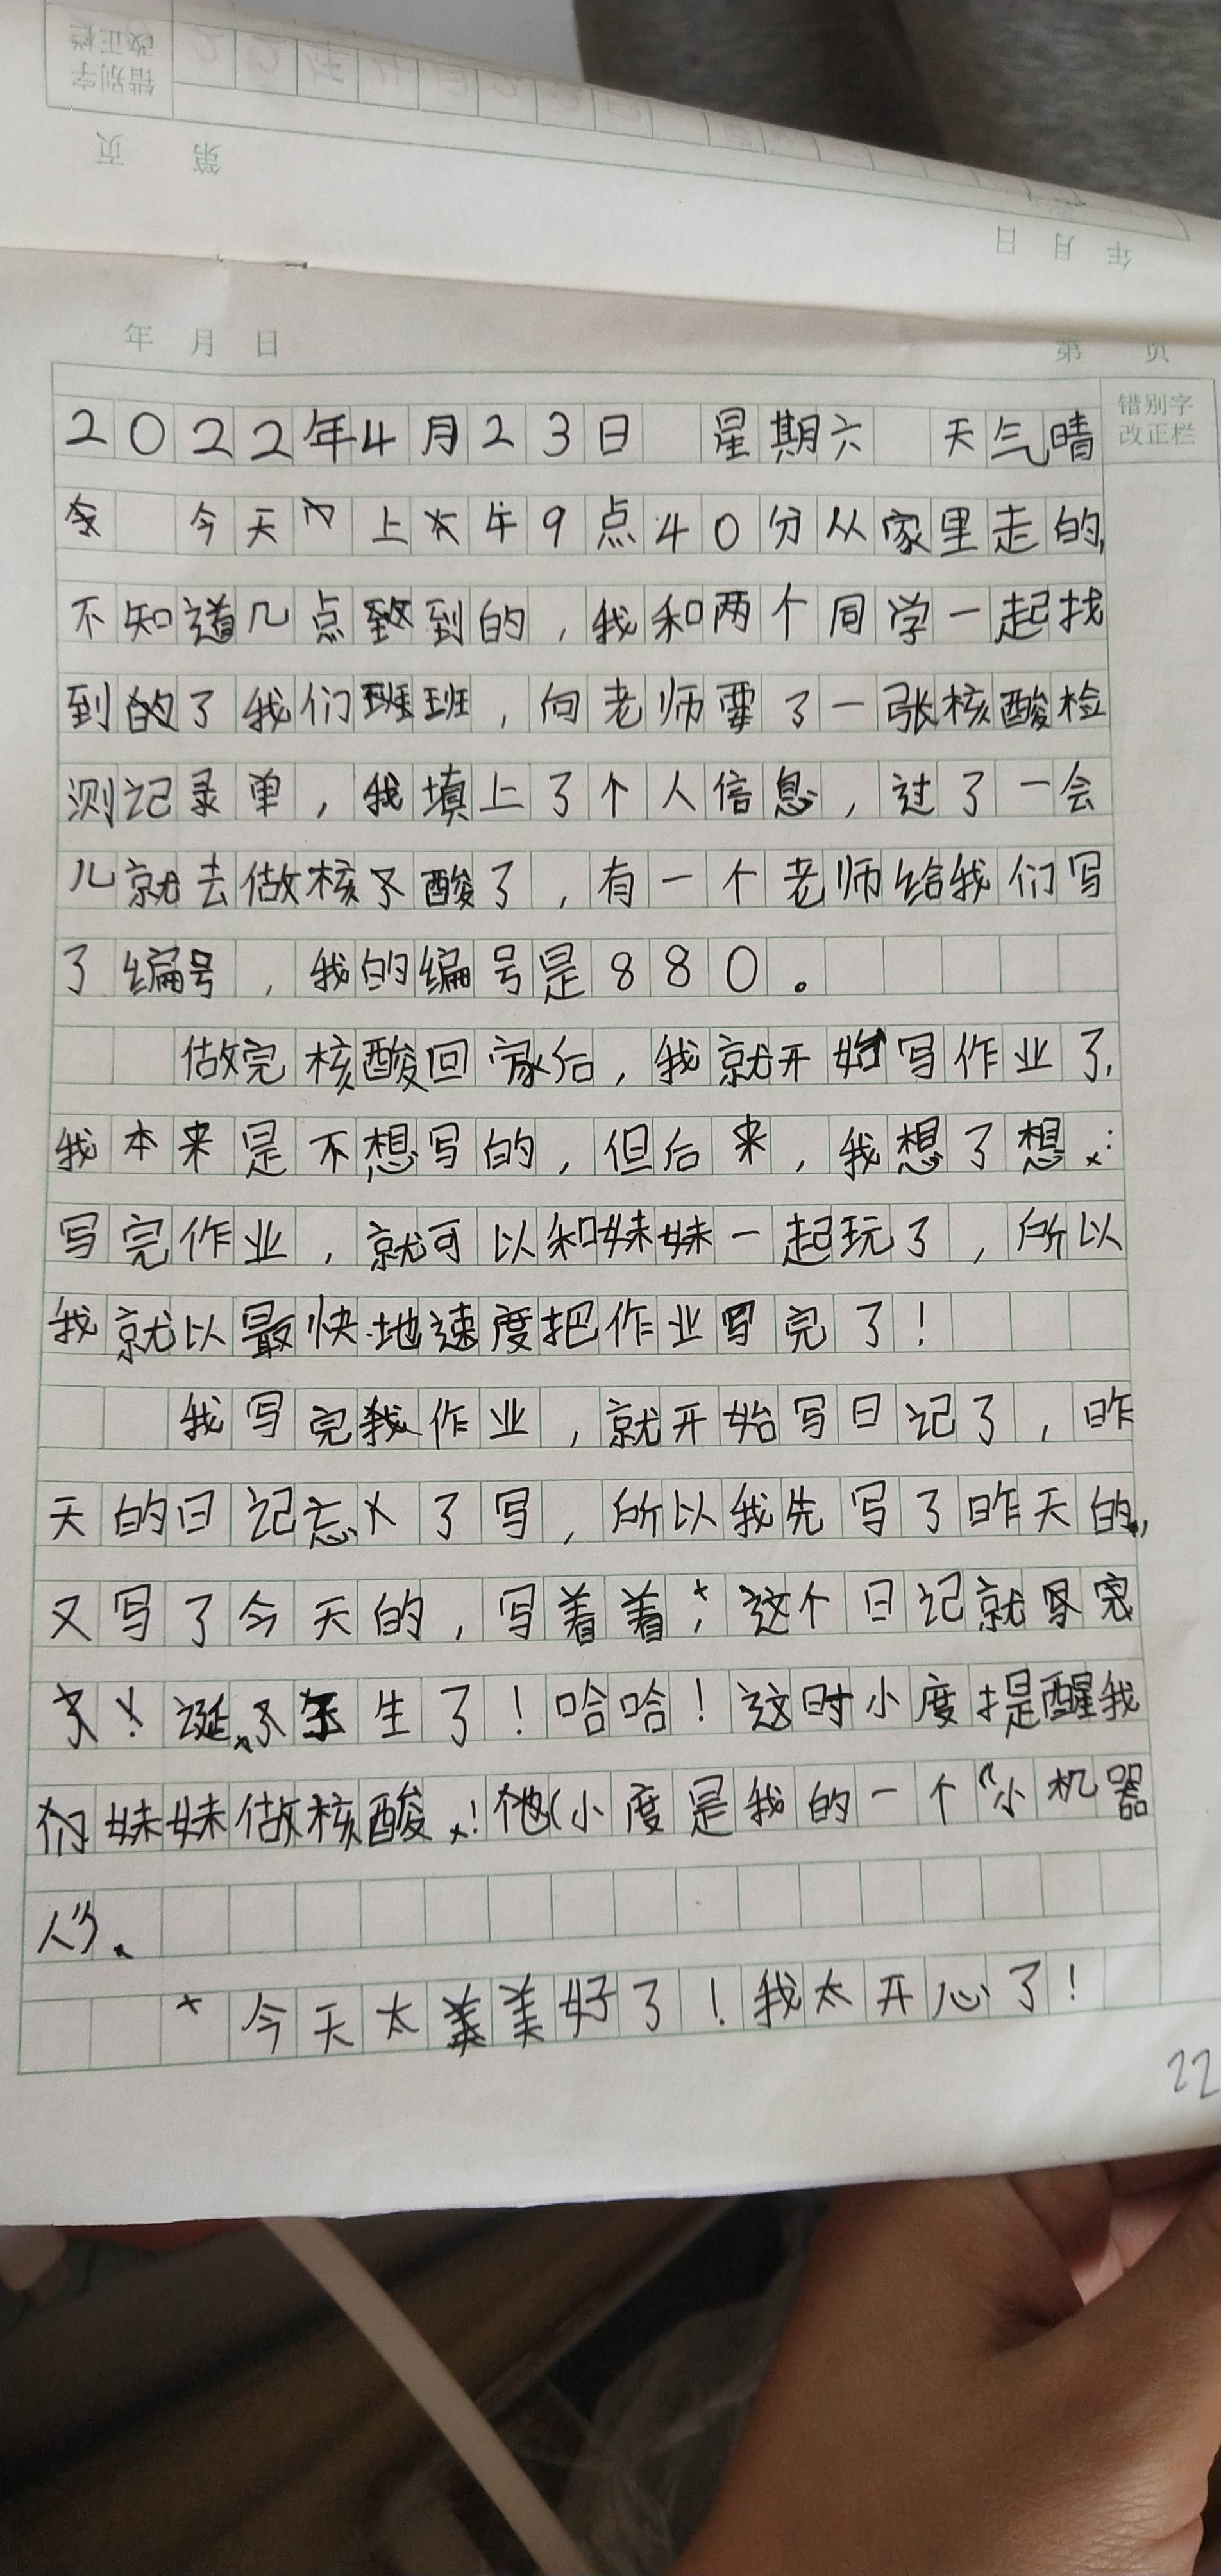 错别字
改正栏
第 页
年 月 日
年 月 日 第 页
错别字
改正栏
2022年4月23日 星期六 天气晴
今天上午9点40分从家里走的,
不知道几点到的,我和两个同学一起找
到了我们班,向老师要了一张核酸检
测记录单,我填上了个人信息,过了一会
儿就去做核酸了,有一个老师给我们写
了编号,我的编号是880。
做完核酸回家后,我就开始写作业了,
我本来是不想写的,但后来,我想了想:
写完作业,就可以和妹妹一起玩了,所以
我就以最快地速度把作业写完了!
我写完作业,就开始写日记了,昨
天的日记忘了写,所以我先写了昨天的,
又写了今天的,写着着,这个日记就
诞生了!哈哈!这时小度提醒我
们妹妹做核酸!(小度是我的一个“小机器
人”)。
今天太美好了!我太开心了!
22